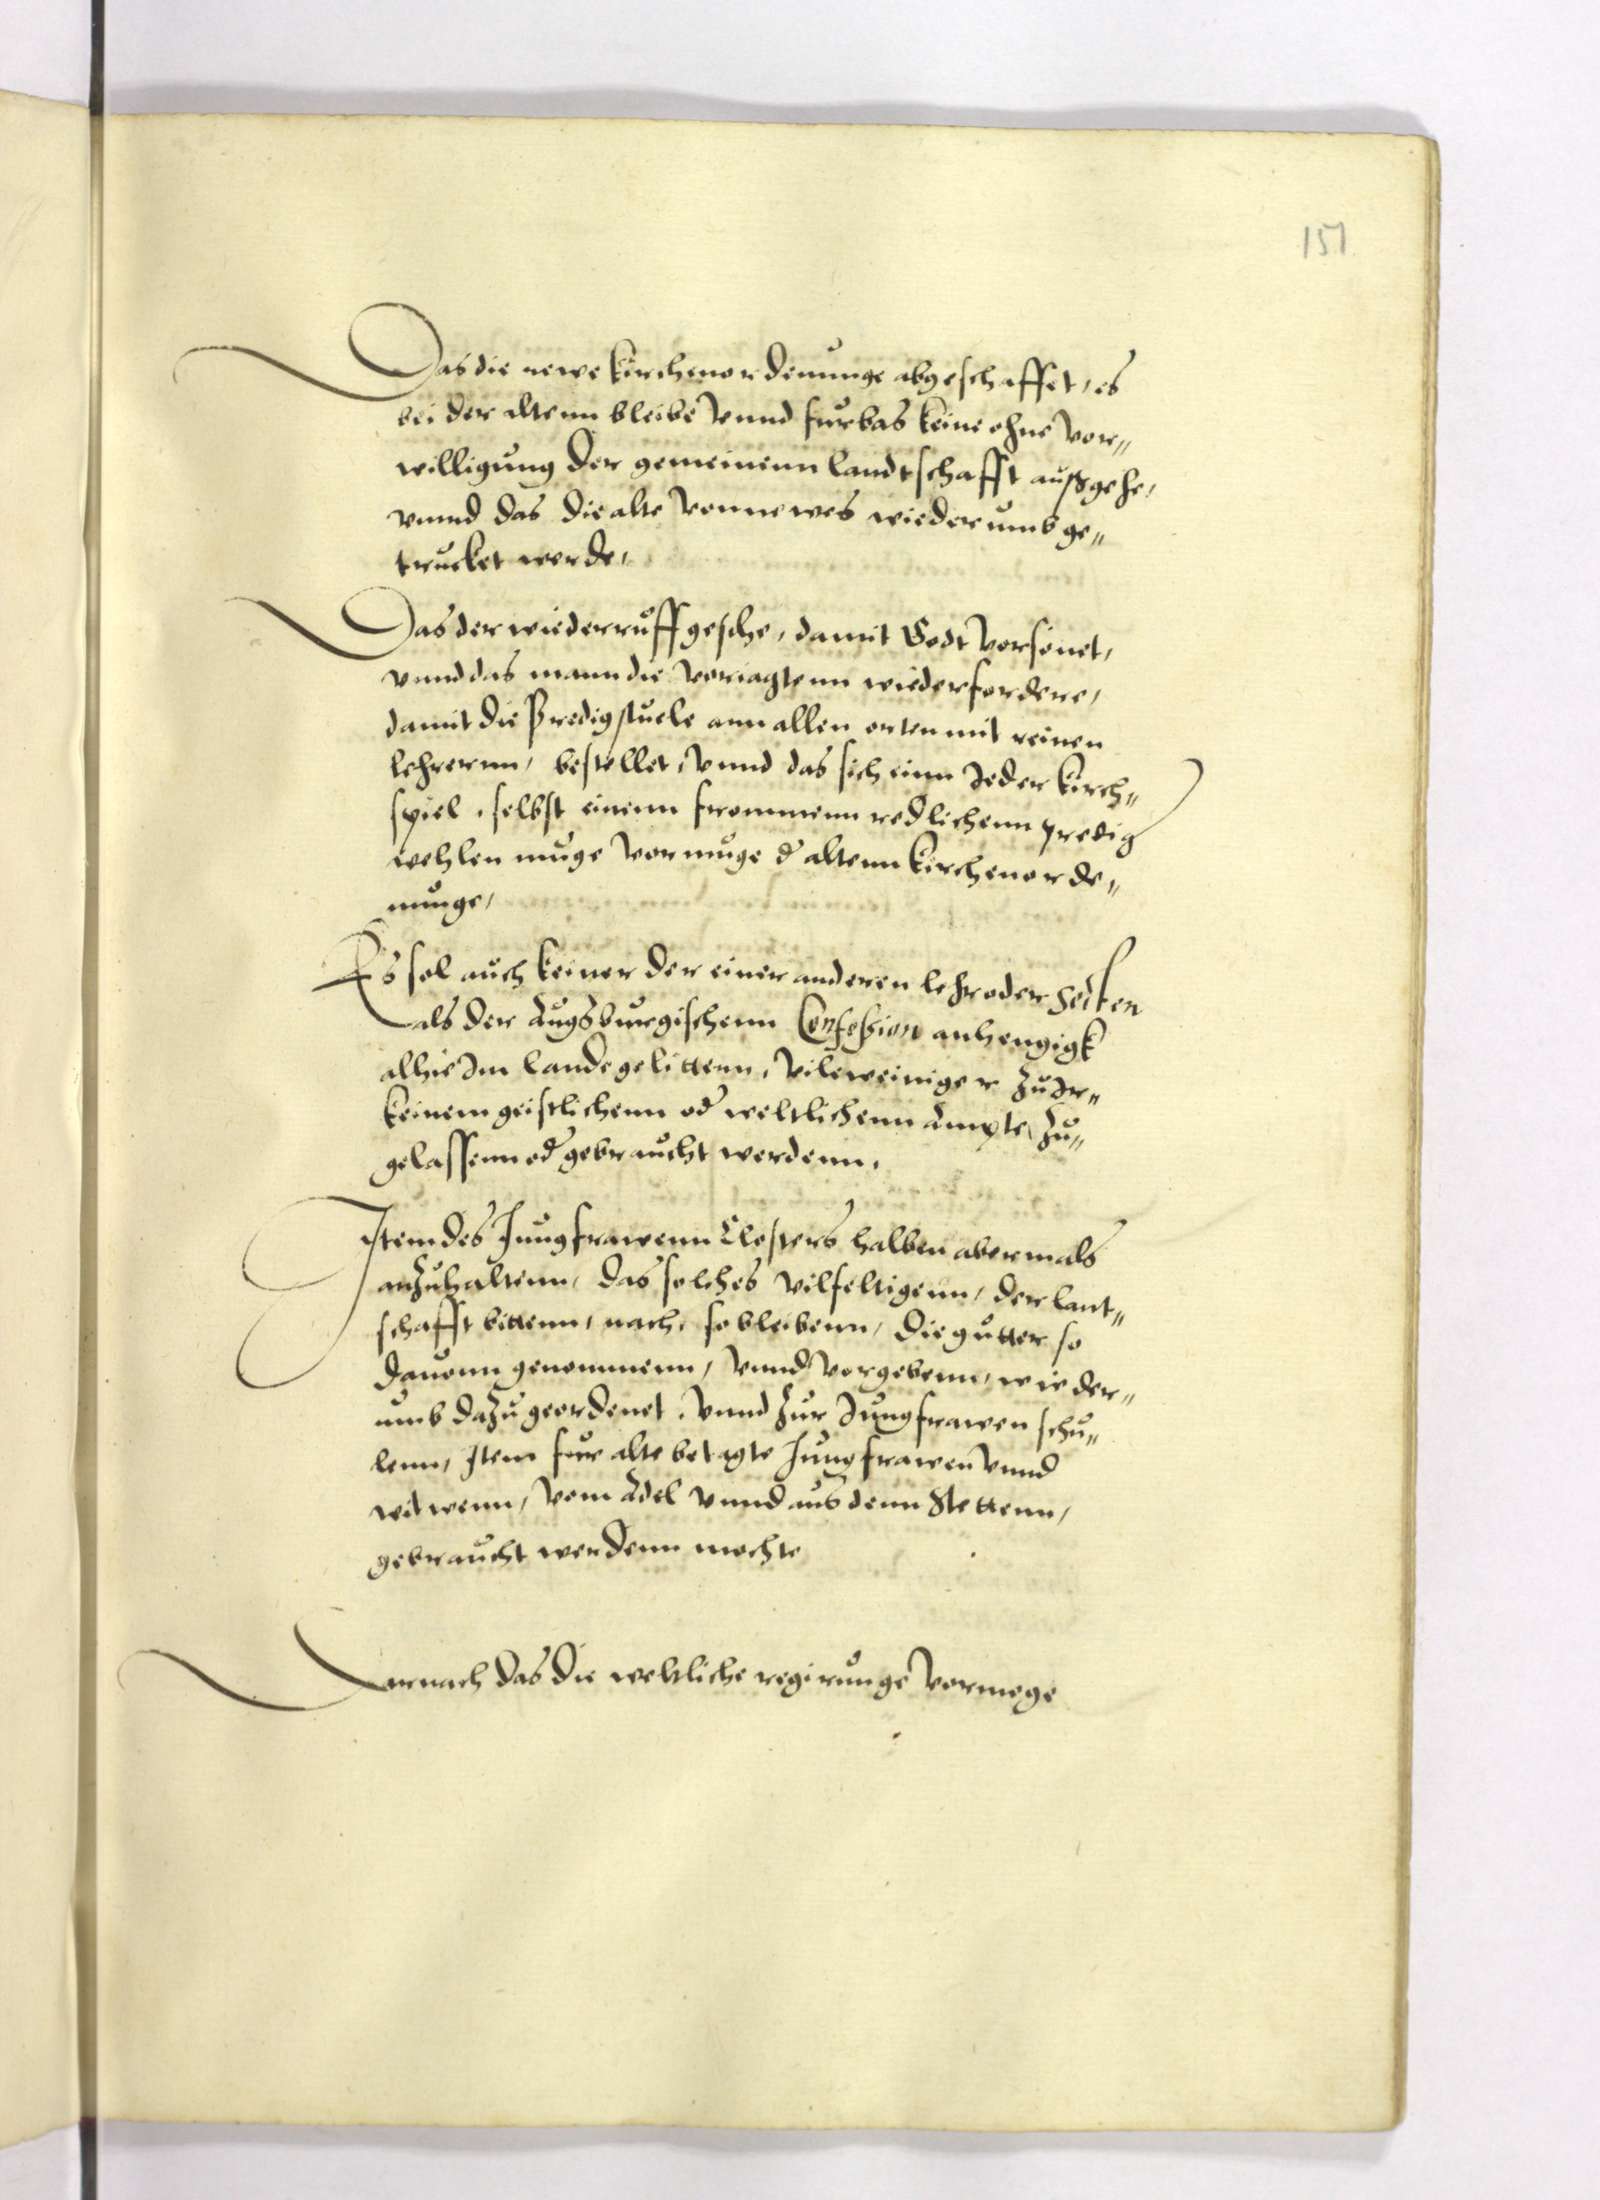 151
Das die newe kirchenordenunge abgeschaffet, es
bei der altenn bleibe vnnd furbas keine ohne vor„
willigung der gemeinenn landtschafft außgehe,
vnnd das die alte vonnewes wiederumb ge„
trucket werde,
Das der wiederruff geschehe, damit Godt vorsönet,
vnnd das mann die voriagtenn wiederfordere,
damit die Predigstuele ann allen orten mit reinen
lehrernn, bestellet, vnnd das sich einn Jeder kirch„
spiel, selbst einenn frommenn redlichenn predig
wehlen muge vormuge d altenn kirchenorde„
nunge,
Es sol auch keiner der einer anderen lehr oder Secten
als der Augsburgischenn Confession anhengigk
alhie Im lande gelittenn, vilweiniger zu Ir„
keinem geistlichenn od weltlichenn Ampte, zu„
gelassenn od gebraucht werdenn,
Item des Jungfrawenn Closters halben abermals
anzuhaltenn, das solches vilfeltigenn, der lant„
schafft bittenn, nach, so bleibenn, die gutter so
dauonn genommenn, vnnd vorgebenn, wieder„
umb dazu geordenet, vnnd zur Jungfrawen schu„
lenn, Item fur alte betagte Jungfrawen vnnd
witwenn, vom Adel vnnd aus denn Stettenn,
gebraucht werdenn mochte
Darnach das die weltliche regirunge vormoge